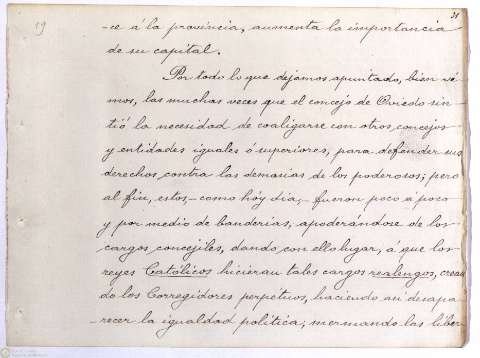 19
31
-ce á la provincia, aumenta la importancia
de su capital.
Por todo lo que dejamos apuntado, bien ve
mos, las muchas veces que el concejo de Oviedo sin
tió la necesidad de coaligarse con otros concejos
y entidades iguales ó superiores, para defender sus
derechos contra las demasias de los poderosos; pero
al fin, estos-como hóy dia,-fueron poco á poco
y por medio de banderias, apoderándose de los
cargos concejiles, dando con ello lugar, á que los
reyes Católicos hicieran tales cargos realengos, crean
do los Corregidores perpetuos, haciendo asi desapa
-recer la igualdad politica; mermando las liber